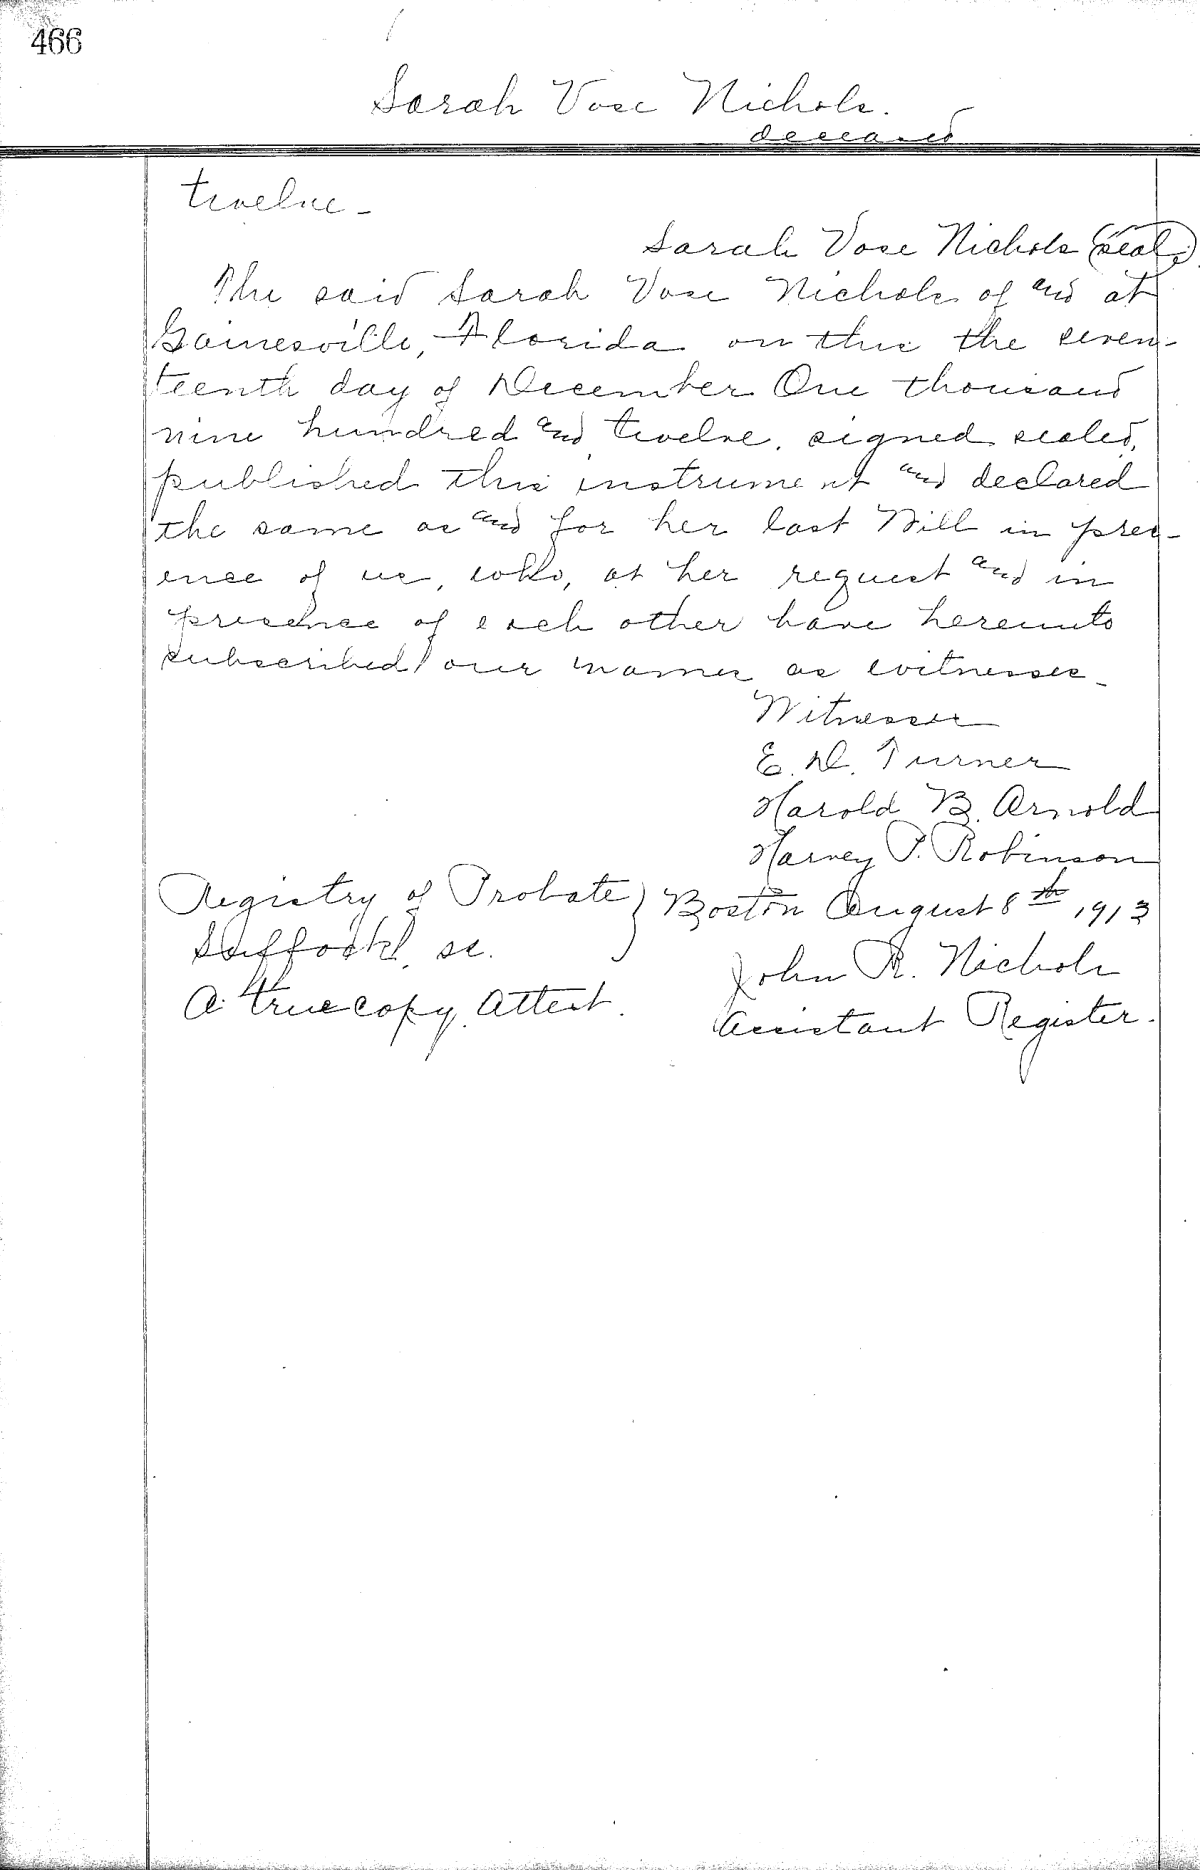 466
Sarah Vose Nichols.
deceased
twelve -
Sarah Vose Nichols (seal)
The said Sarah Vose Nichols of and at
Gainesville, Florida on this the seven-
teenth day of December One thousand
nine hundred and twelve, signed sealed,
published this instrument and declared
the same as and for her last Will in pres-
ence of us, who, at her request and in
presence of each other have hereunto
subscribed our names as witnesses -
Witnesses
E. D. Turner
Harold B. Arnold
Harvey P. Robinson
Registry of Probate } Boston August 8th 1913
Suffolk, ss.
John R. Nichols
A true copy. Attest.
Assistant Register.